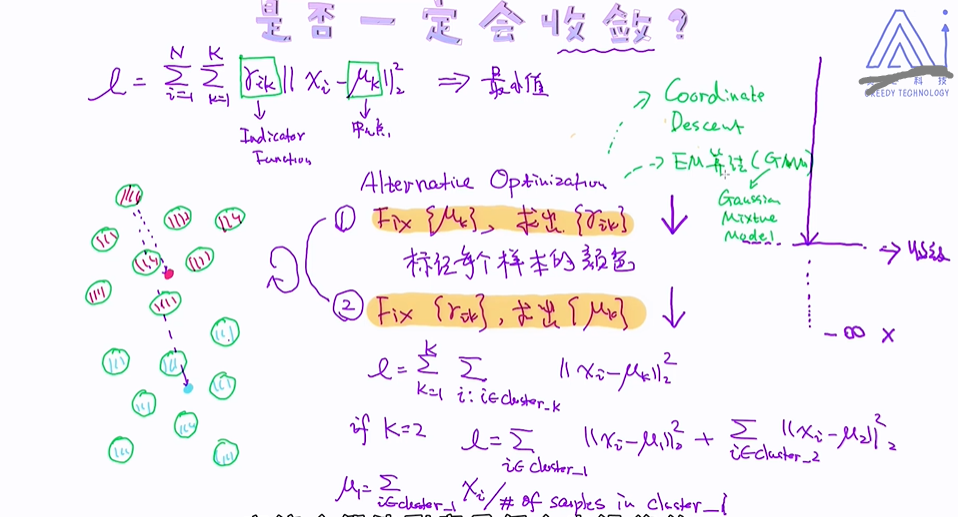 是否一定会收敛?
l = Σ_{i=1}^{N} Σ_{k=1}^{K} γ_{ik} ||x_i - μ_k||_2^2 ⇒ 最小值
Indicator
Function
中心点
GREEDY TECHNOLOGY
Coordinate
Descent
EM算法(GMM)
Gaussian
Mixture
Model
Alternative Optimization
① Fix {μ_k}, 求出 {γ_{ik}}
标记每个样本的颜色
② Fix {γ_{ik}}, 求出 {μ_k}
→ 收敛
-∞ X
l = Σ_{k=1}^{K} Σ_{i: i∈cluster_k} ||x_i - μ_k||_2^2
if K=2 l = Σ_{i∈cluster_1} ||x_i - μ_1||_2^2 + Σ_{i∈cluster_2} ||x_i - μ_2||_2^2
μ_1 = Σ_{i∈cluster_1} x_i / # of samples in cluster_1